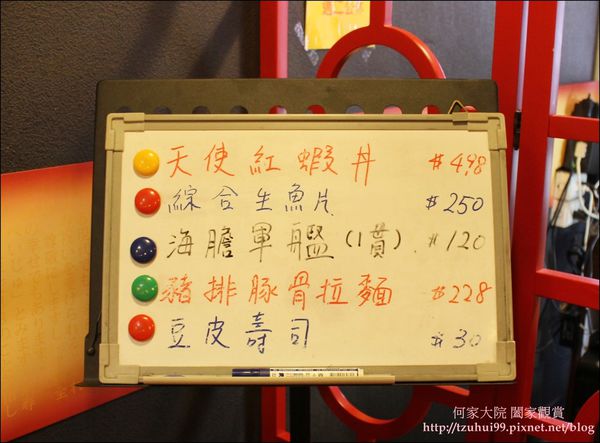 天使紅蝦丼 $498
綜合生魚片 $250
海膽軍艦(1貫). $120
豬排豚骨拉麵 $228
豆皮壽司 $30
何家大院 闔家觀賞
http://tzuhui99.pixnet.net/blog